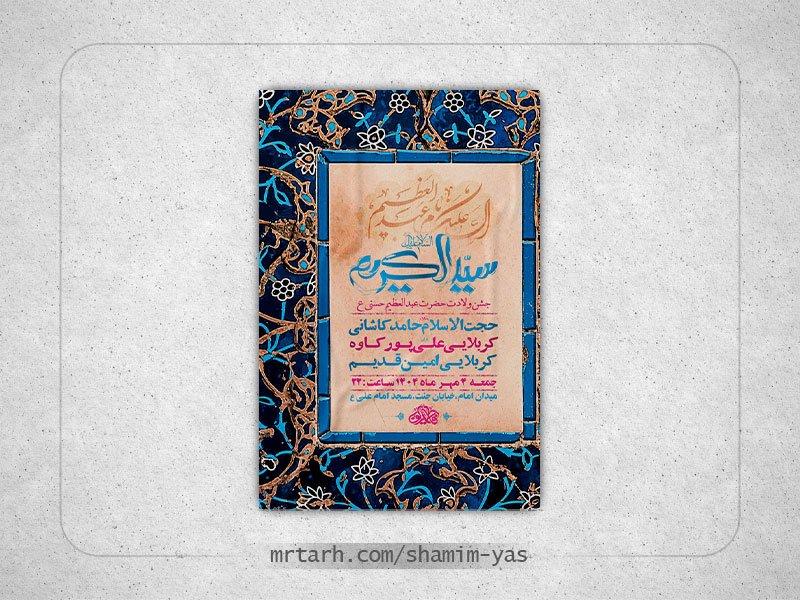 السلام علیک
سیدالکریم
جشن ولادت حضرت عبدالعظیم حسنی ع
حجت الاسلام حامد کاشانی
کربلایی علی پور کاوه
کربلایی امین قدیم
جمعه ۴ مهر ماه ۱۴۰۴ ساعت: ۲۲
میدان امام، خیابان جنت، مسجد امام علی ع
mrtarh.com/shamim-yas